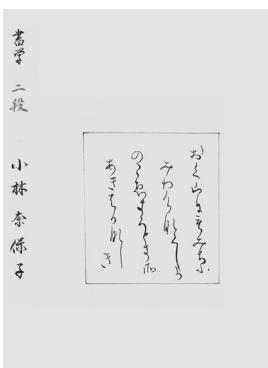 おく山にもみちふ
みわけなくしか
のこゑきくときそ
あきはかなし
き
書学 二段 小林奈保子